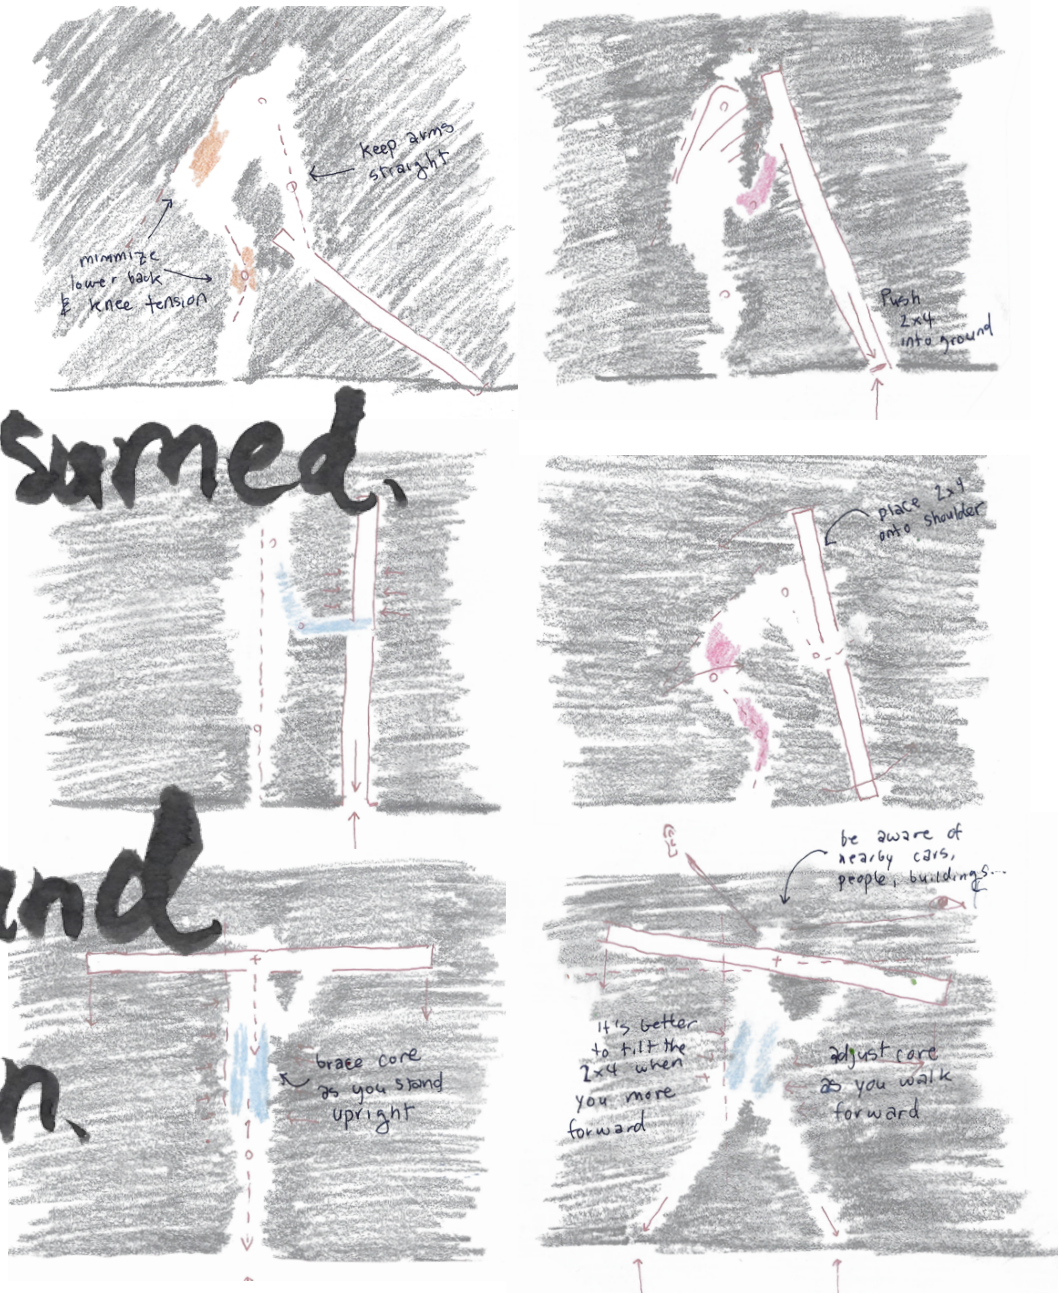 keep arms
straight
minimize
lower back
& knee tension
Push
2x4
into ground
sumed,
place 2x4
onto shoulder
be aware of
nearby cars,
people, buildings...
and
brace core
as you stand
upright
It's better
to tilt the
2x4 when
you more
forward
adjust core
as you walk
forward
n.